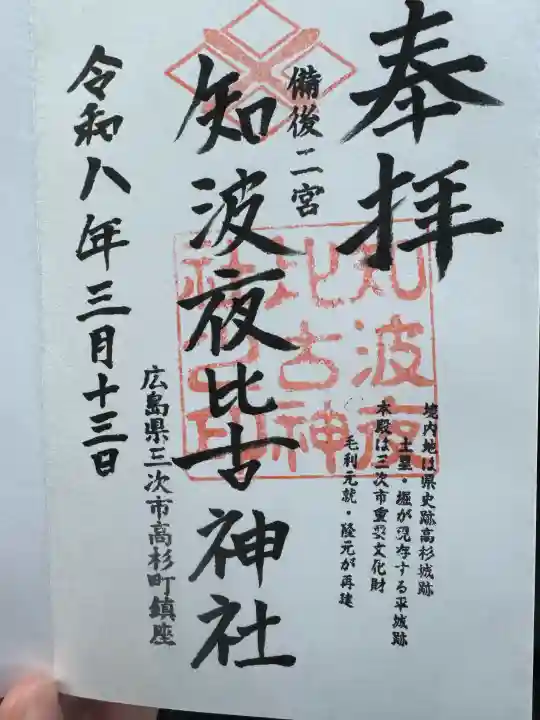 奉拝
備後二宮
知波夜比古神社
令和八年三月十三日
広島県三次市高杉町鎮座
境内地は県史跡高杉城跡
土塁・堀が現存する平城跡
本殿は三次市重要文化財
毛利元就・隆元が再建
知波夜
比古神
社宮印